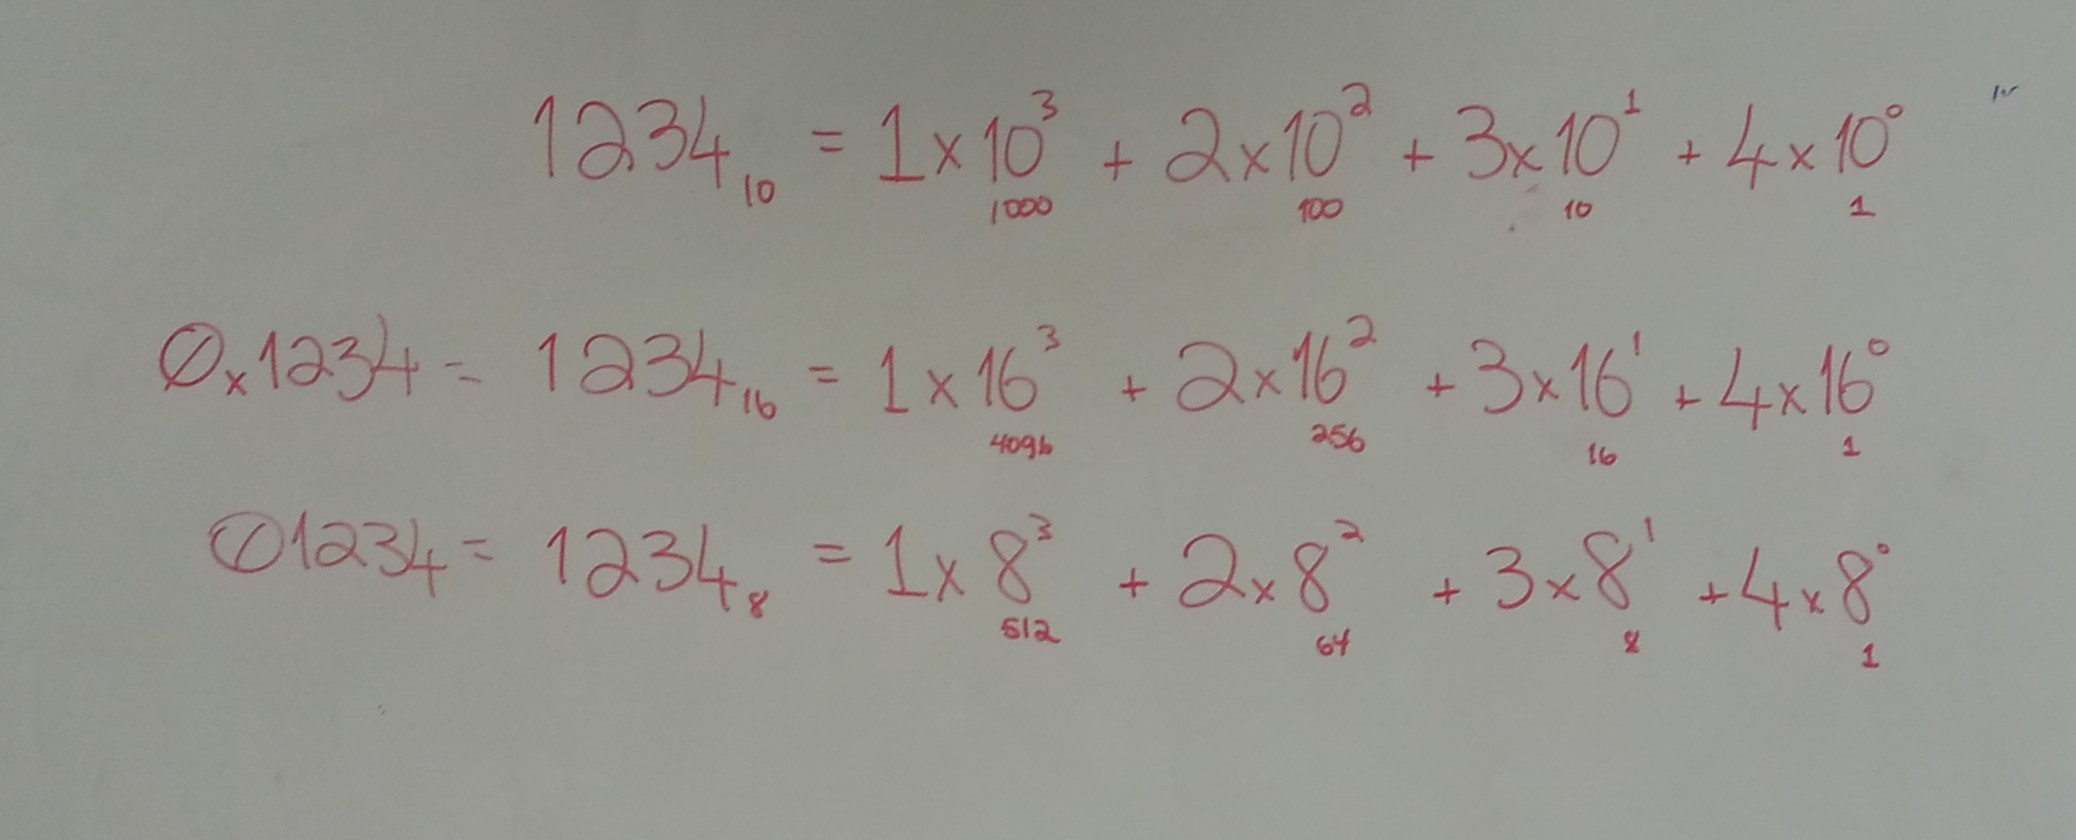 1234₁₀ = 1x10³ + 2x10² + 3x10¹ + 4x10⁰
1000 100 10 1
0x1234 = 1234₁₆ = 1x16³ + 2x16² + 3x16¹ + 4x16⁰
4096 256 16 1
01234 = 1234₈ = 1x8³ + 2x8² + 3x8¹ + 4x8⁰
512 64 8 1